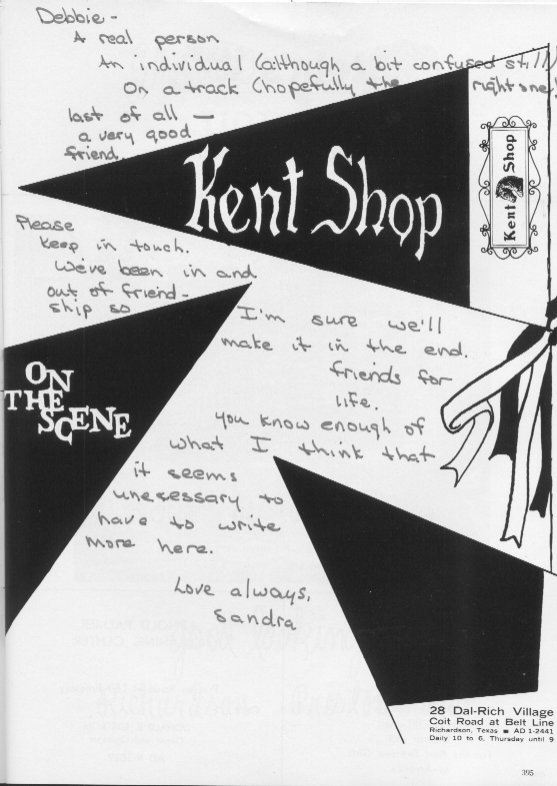 Debbie -
A real person
An individual (although a bit confused still)
On a track (hopefully the right one!)
last of all —
a very good
friend.
Kent Shop
Kent Shop
Please
keep in touch.
We've been in and
out of friend-
ship so
I'm sure we'll
make it in the end.
friends for
life.
you know enough of
what I think that
it seems
unecessary to
have to write
more here.
Love always,
Sandra
ON
THE
SCENE
28 Dal-Rich Village
Coit Road at Belt Line
Richardson, Texas ■ AD 1-2441
Daily 10 to 6, Thursday until 9
395